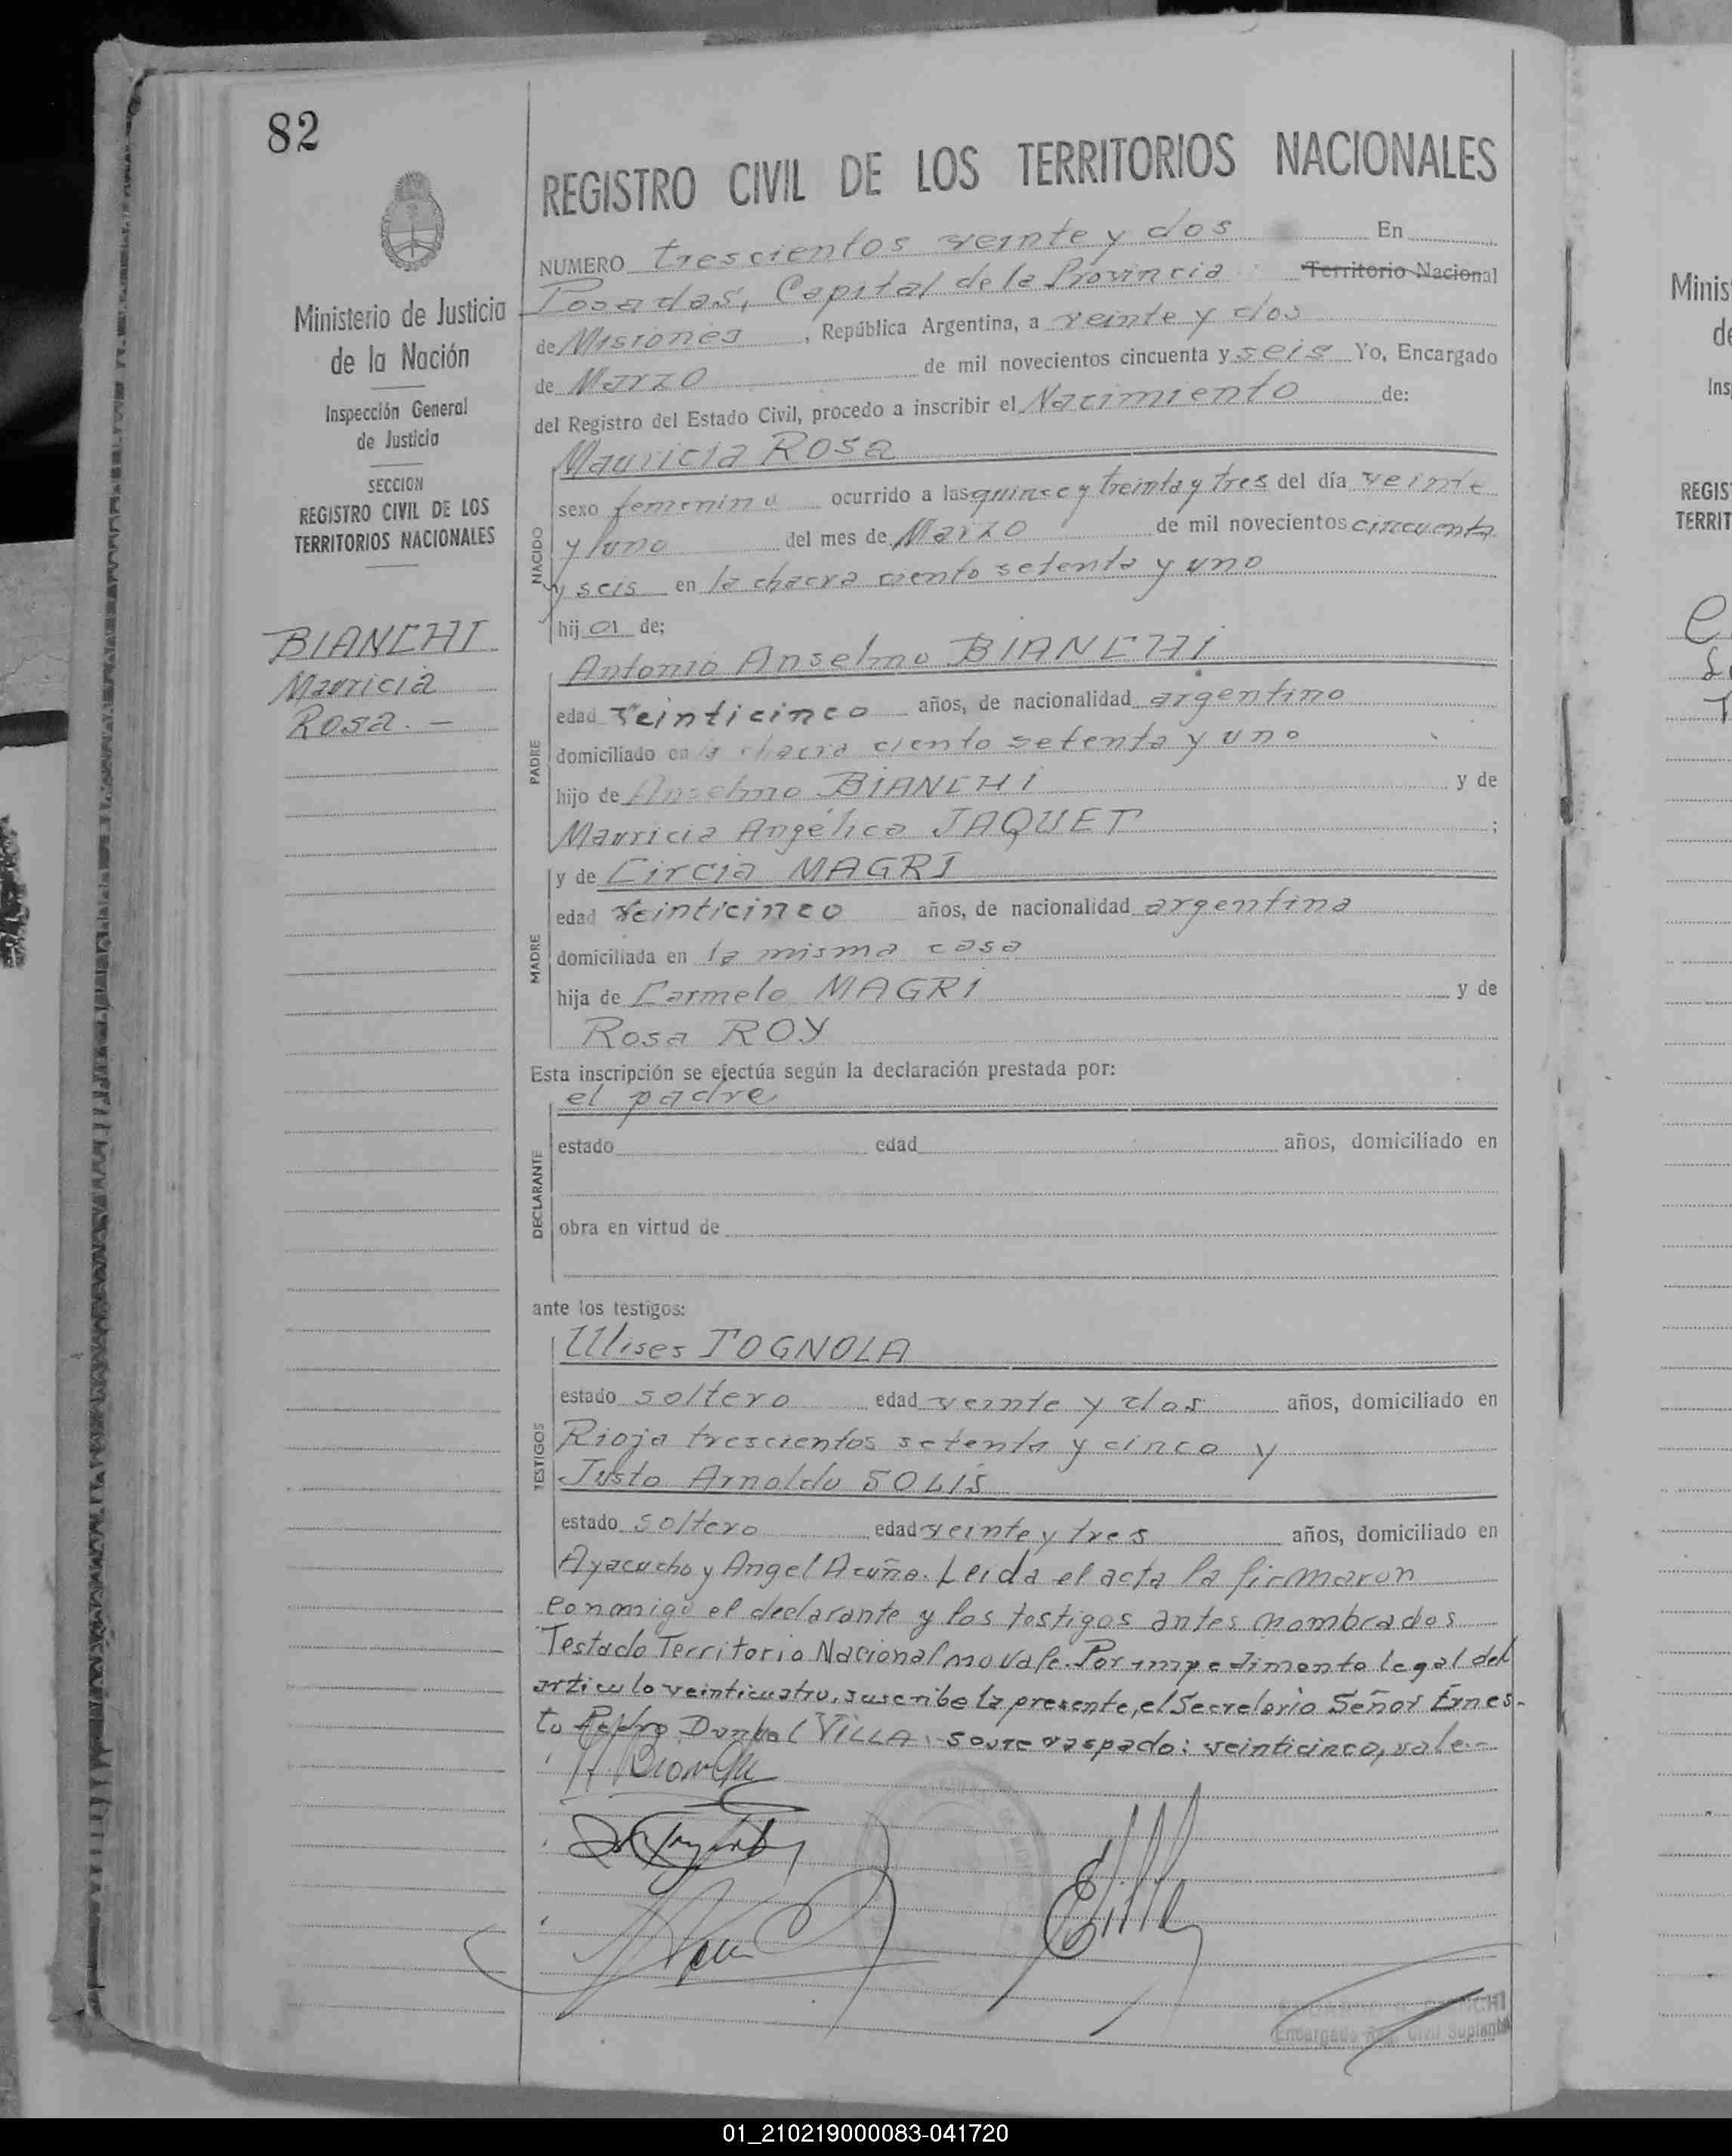 82
REGISTRO CIVIL DE LOS TERRITORIOS NACIONALES
Ministerio de Justicia
de la Nación
Inspección General
de Justicia
SECCION
REGISTRO CIVIL DE LOS
TERRITORIOS NACIONALES
BIANCHI
Mauricia
Rosa. —
NUMERO trescientos veinte y dos En
Posadas, Capital de la Provincia Territorio Nacional
de Misiones, República Argentina, a veinte y dos
de Marzo de mil novecientos cincuenta y seis Yo, Encargado
del Registro del Estado Civil, procedo a inscribir el Nacimiento de:
NACIDO
Mauricia Rosa
sexo femenino ocurrido a las quince y treinta y tres del día veinte
y uno del mes de Marzo de mil novecientos cincuenta
y seis en la chacra ciento setenta y uno
hij de;
PADRE
Antonio Anselmo BIANCHI
edad veinticinco años, de nacionalidad argentino
domiciliado en la chacra ciento setenta y uno
hijo de Anselmo BIANCHI y de
Mauricia Angélica JAQUET ;
MADRE
y de Circia MAGRI
edad veinticinco años, de nacionalidad argentina
domiciliada en la misma casa
hija de Carmelo MAGRI y de
Rosa ROY
Esta inscripción se efectúa según la declaración prestada por:
DECLARANTE
el padre
estado edad años, domiciliado en
obra en virtud de
ante los testigos:
TESTIGOS
Ulises TOGNOLA
estado soltero edad veinte y dos años, domiciliado en
Rioja trescientos setenta y cinco y
Justo Arnoldo SOLIS
estado soltero edad veinte y tres años, domiciliado en
Ayacucho y Angel Acuña. Leida el acta la firmaron
conmigo el declarante y los testigos antes nombrados
Testado Territorio Nacional no vale. Por impedimento legal del
articulo veinticuatro, suscribe la presente, el Secretario Señor Ernes-
to Pedro VILLA. Sobre raspado: veinticinco, vale.-
A Bianchi
Encargado Reg. Civil Suplente
Minis
de
Ins
REGIS
TERRIT
01_210219000083-041720